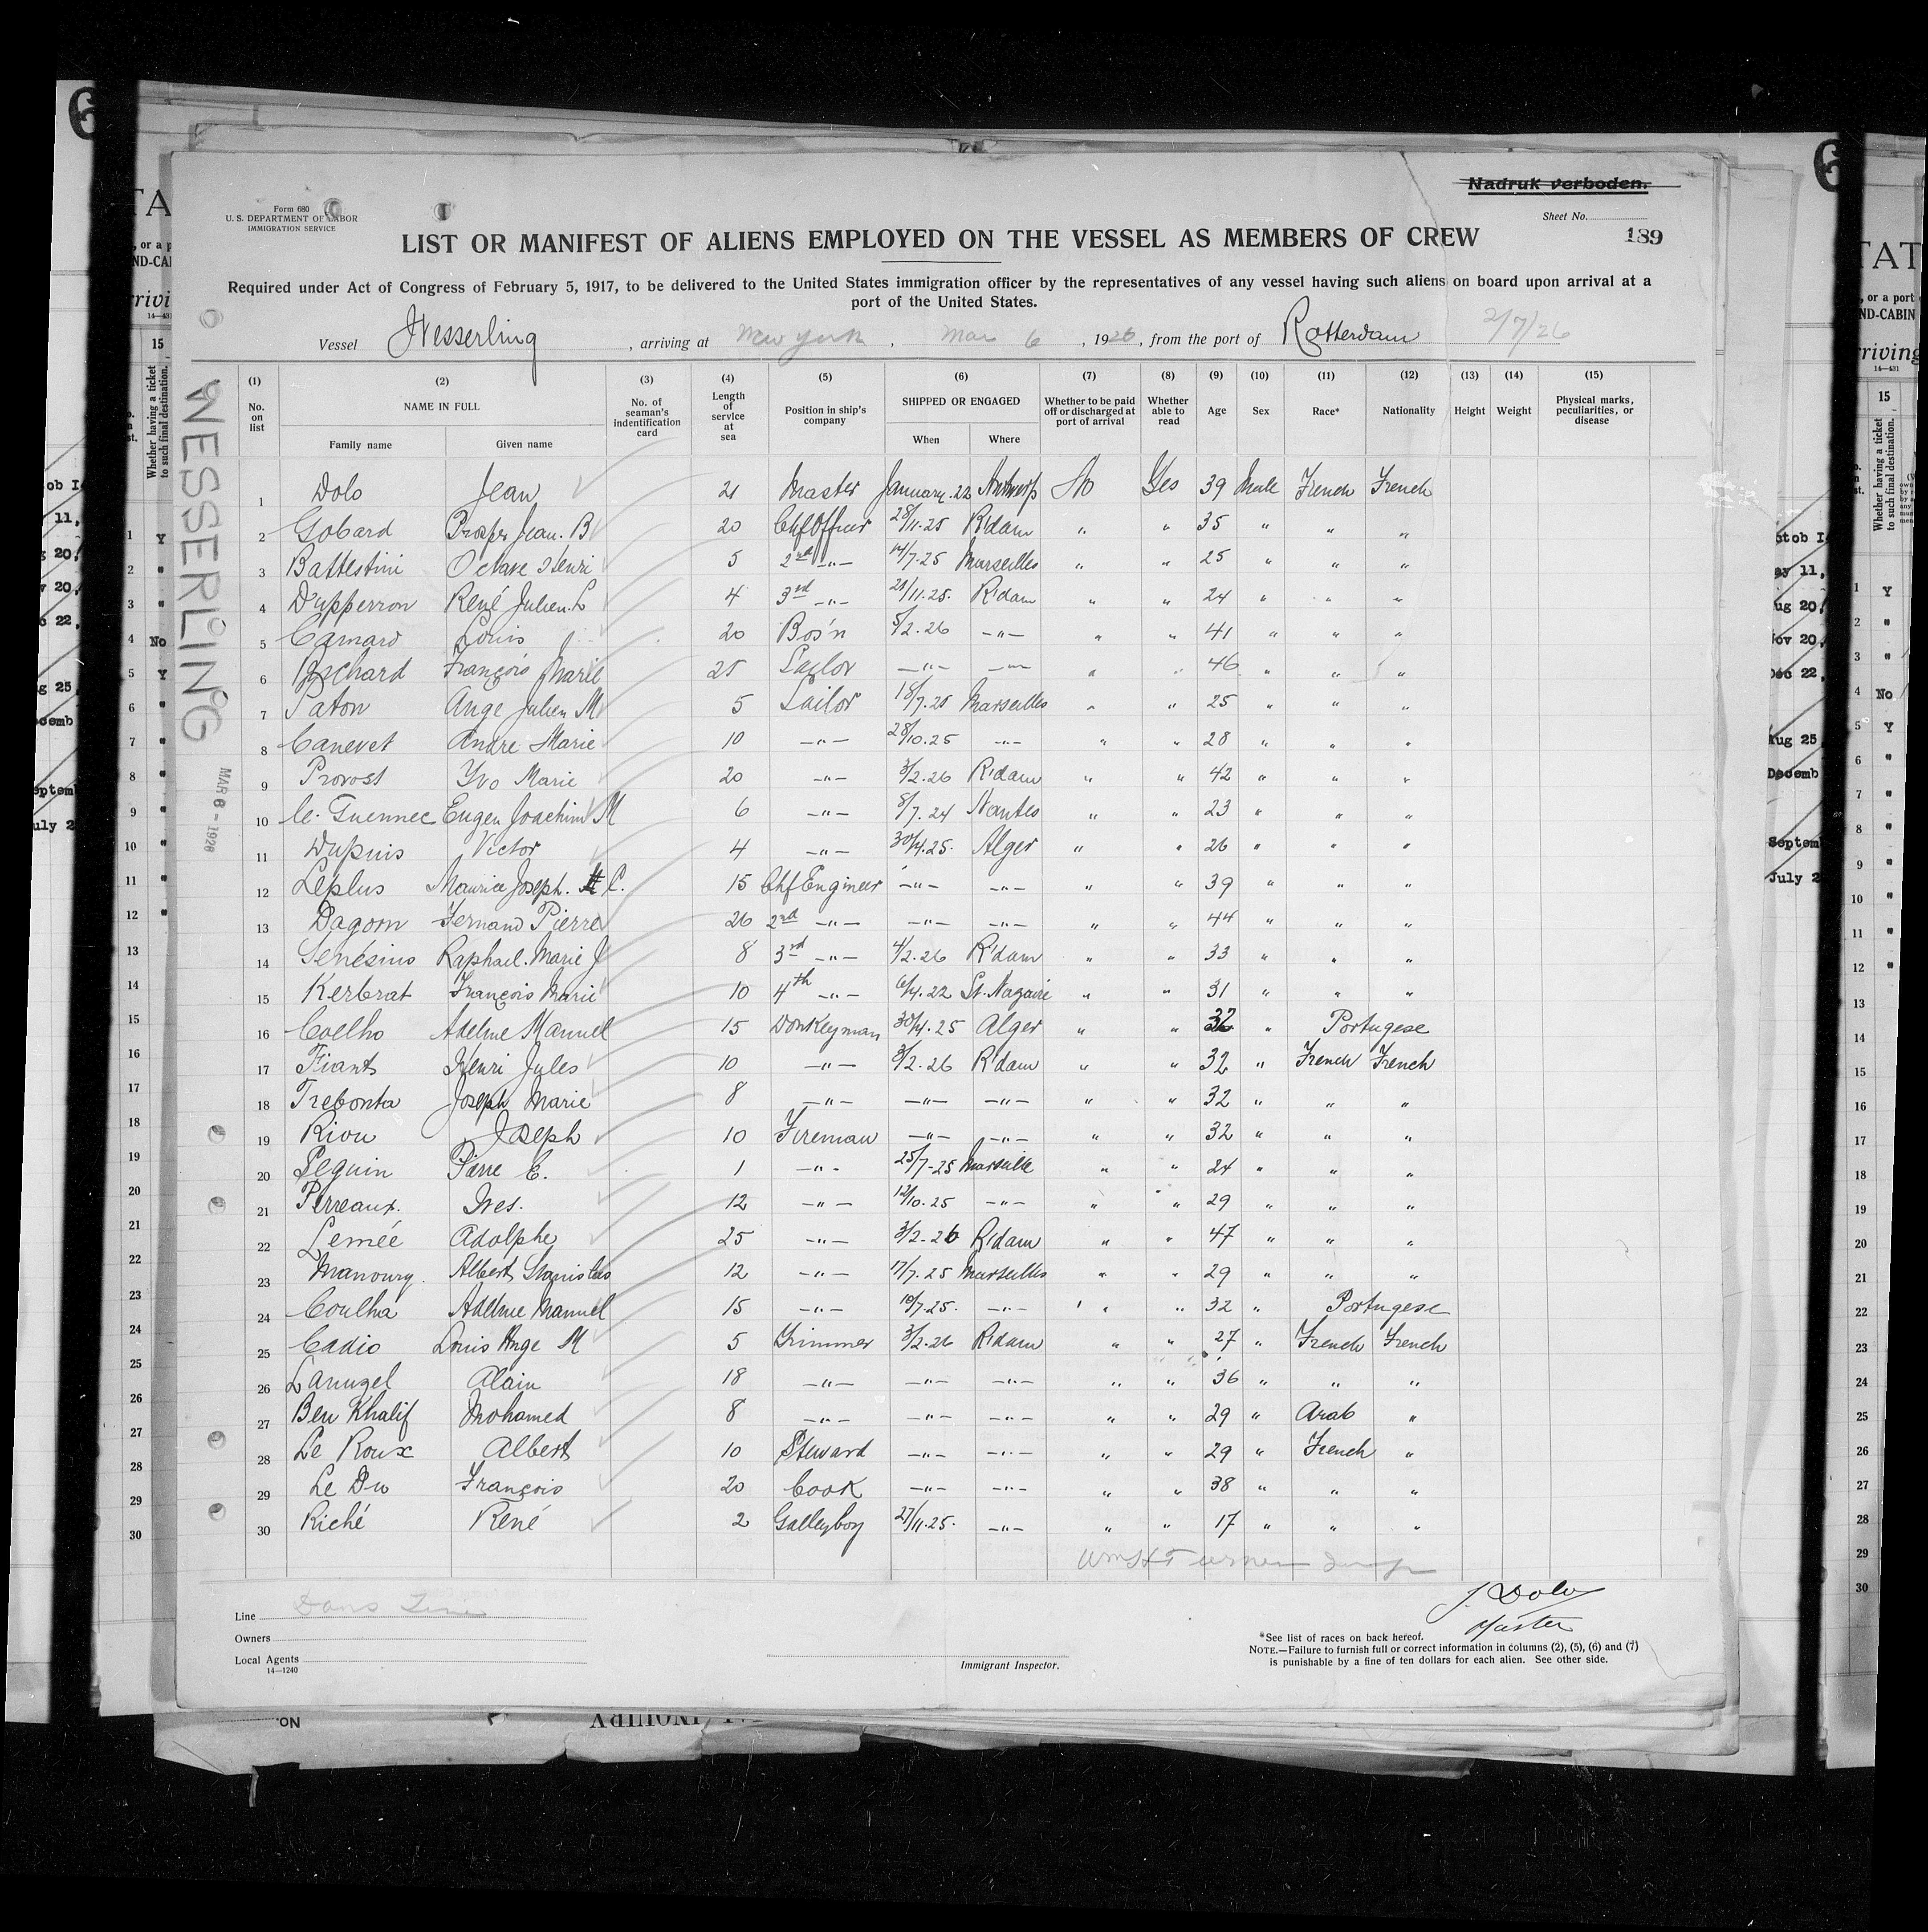 Nadruk verboden.
Form 680
U. S. DEPARTMENT OF LABOR
IMMIGRATION SERVICE
Sheet No.
189
LIST OR MANIFEST OF ALIENS EMPLOYED ON THE VESSEL AS MEMBERS OF CREW
Required under Act of Congress of February 5, 1917, to be delivered to the United States immigration officer by the representatives of any vessel having such aliens on board upon arrival at a
port of the United States.
Vessel Wesserling, arriving at New York, Mar 6, 1926, from the port of Rotterdam 2/7/26
WESSERLING
MAR 6 - 1926
(1) (2) (3) (4) (5) (6) (7) (8) (9) (10) (11) (12) (13) (14) (15)
No. on list
NAME IN FULL
Family name Given name
No. of seaman's indentification card
Length of service at sea
Position in ship's company
SHIPPED OR ENGAGED
When Where
Whether to be paid off or discharged at port of arrival
Whether able to read
Age Sex Race* Nationality Height Weight
Physical marks, peculiarities, or disease
1 Dolo Jean 21 Master January.22 Antwerp No Yes 39 Male French French
2 Gobard Prosper Jean. B 20 Chf Officer 28/11.25 R'dam " " 35 " " "
3 Battestini Octave Henri 5 2nd -"- 14/7.25 Marseilles " " 25 " " "
4 Dupperron René Julien. L 4 3rd -"- 21/11.25. R'dam " " 24 " " "
5 Camard Louis 20 Bos'n 5/2.26 -"- " " 41 " " "
6 François Marie 25 Sailor -"- -"- " " 46 " " "
7 Paton Ange Julien M 5 Sailor 18/7.25 Marseilles " " 25 " " "
8 Canevet Andre Marie 10 -"- 28/10.25 -"- " " 28 " " "
9 Provost Yvo Marie 20 -"- 3/2.26 R'dam " " 42 " " "
10 Le Guennec Eugen Joachim M 6 -"- 8/7.24 Nantes " " 23 " " "
11 Dupuis Victor 4 -"- 30/4.25. Alger " " 26 " " "
12 Leplus Maurice Joseph. C. 15 Chf Engineer -"- -"- " " 39 " " "
13 Dagorn Fernand Pierre 26 2nd -"- -"- -"- " " 44 " " "
14 Senésius Raphael. Marie J 8 3rd -"- 4/2.26 R'dam " " 33 " " "
15 Kerbrat François Marie 10 4th -"- 6/4.22 St. Nazaire " " 31 " " "
16 Coelho Adeline Manuel 15 Donkeyman 30/4.25 Alger " " 32 " Portugese
17 Fiants Henri Jules 10 -"- 3/2.26 R'dam " " 32 " French French
18 Trebonta Joseph Marie 8 -"- -"- -"- " " 32 " " "
19 Riou Joseph 10 Fireman -"- -"- " " 32 " " "
20 Seguin Pierre C. 1 -"- 25/7-25 Marseille " " 24 " " "
21 Perreaux. Ives. 12 -"- 12/10.25 -"- " " 29 " " "
22 Lemée Adolphe 25 -"- 3/2-26 R'dam " " 47 " " "
23 Manoury. Albert Stanislas 12 -"- 17/7.25 Marseilles " " 29 " " "
24 Coulha Adeline Manuel 15 -"- 10/7.25. -"- " " 32 " Portugese
25 Cadio Louis Ange M 5 Trimmer 3/2.26 R'dam " " 27 " French French
26 Lanuzel Alain 18 -"- -"- -"- " " 36 " " "
27 Ben Khalif Mohamed 8 -"- -"- -"- " " 29 " Arab "
28 Le Roux Albert 10 Steward -"- -"- " " 29 " French "
29 Le Du François 20 Cook -"- -"- " " 38 " " "
30 Riché René 2 Galleyboy 27/11.25. -"- " " 17 " " "
J. Dolo
Master
Line
Owners
Local Agents
14—1240
Immigrant Inspector.
*See list of races on back hereof.
NOTE.—Failure to furnish full or correct information in columns (2), (5), (6) and (7)
is punishable by a fine of ten dollars for each alien. See other side.